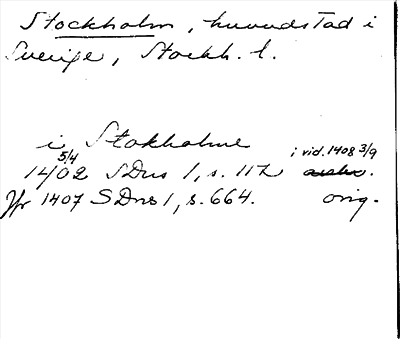 Stockholm, huvudstad i
Sverige, Stockh. l.
i Stokholme
5/4 i vid. 1408 3/9
1402 SDns 1, s. 112 avskr.
Jfr 1407 SDns 1, s. 664. orig.